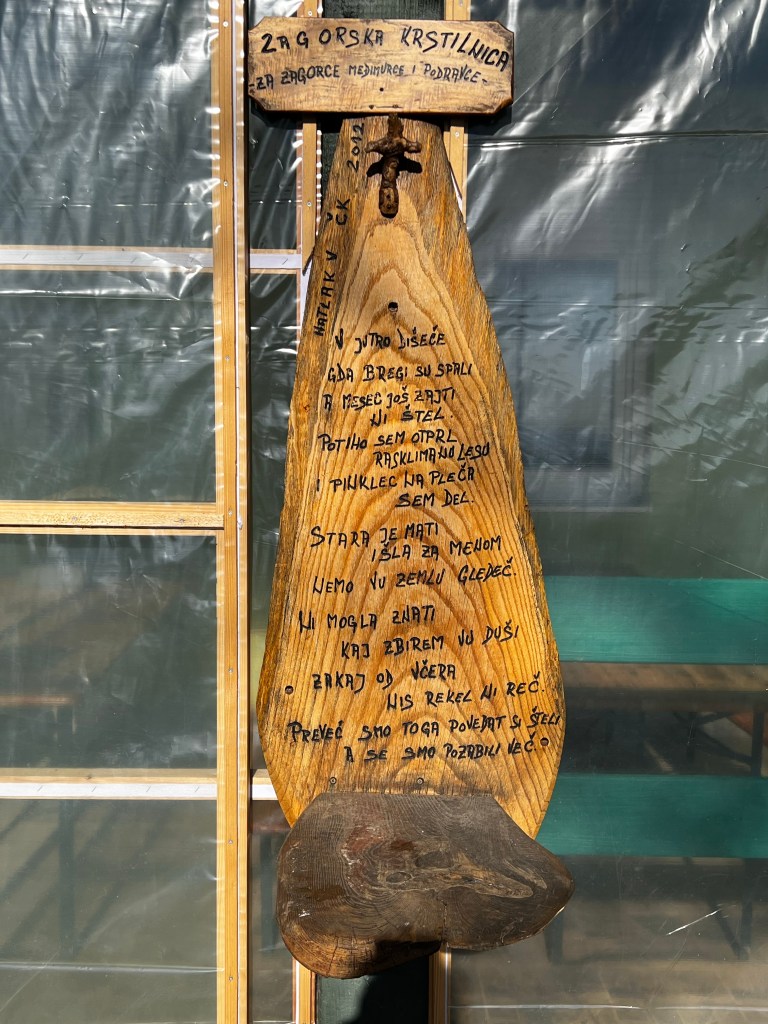 ZAGORSKA KRSTILNICA
-ZA ZAGORCE MEĐIMURCE I PODRAVCE-
HATLAK V ČK 2012
V JUTRO DIŠEČE
GDA BREGI SU SPALI
A MESEC JOŠ ZAJTI
NI ŠTEL.
POTIHO SEM OTPRL
RASKLIMANU LESU
I PINKLEC NA PLEČA
SEM DEL.
STARA JE MATI
IŠLA ZA MENOM
NEMO VU ZEMLU GLEDEČ.
NI MOGLA ZNATI
KAJ ZBIREM VU DUŠI
ZAKAJ OD VČERA
NIS REKEL NI REČ.
PREVEČ SMO TOGA POVEDAT SI ŠTELI
A SE SMO POZABILI VEČ.